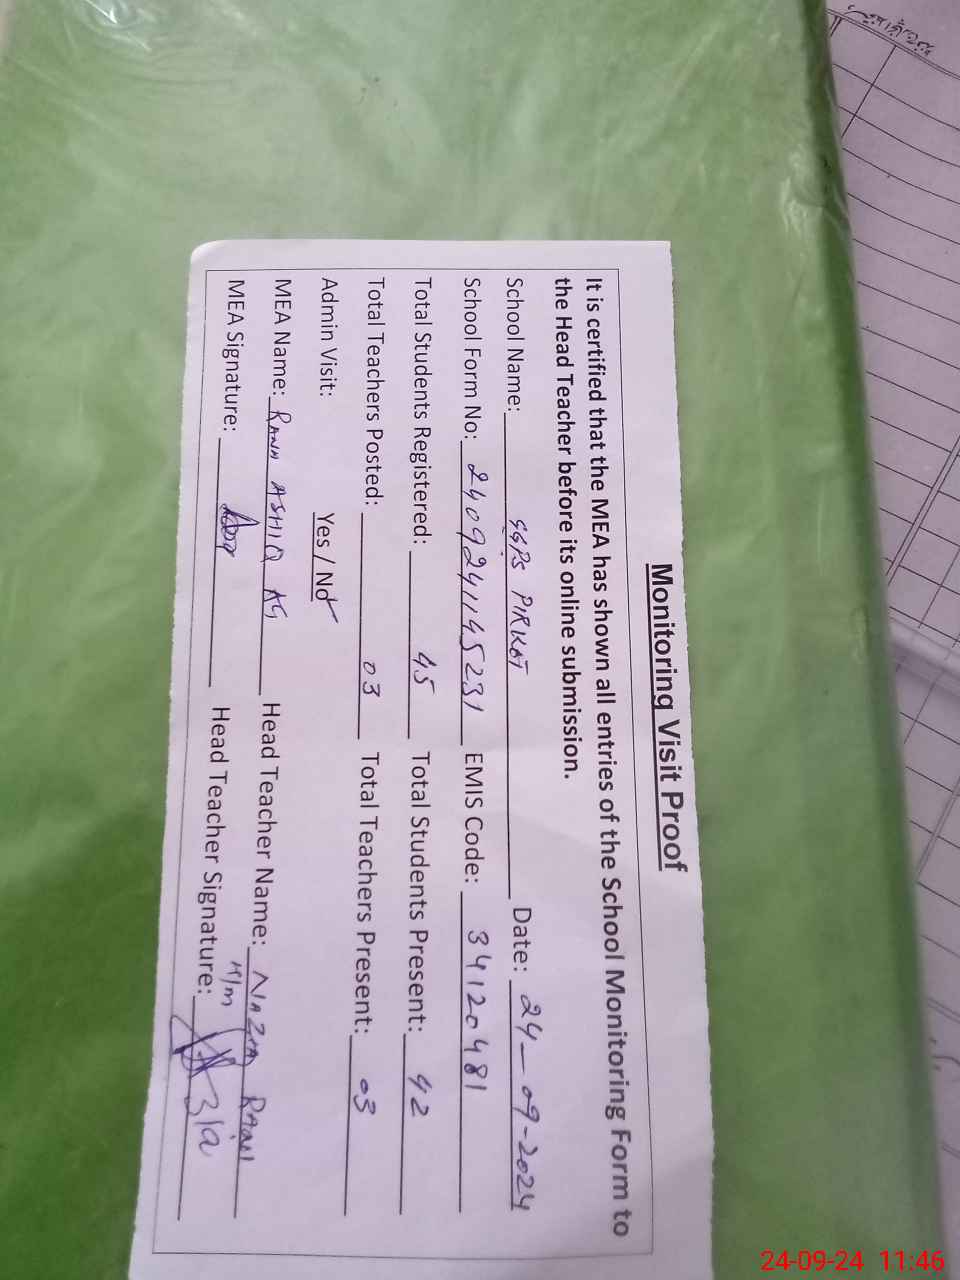 Monitoring Visit Proof
It is certified that the MEA has shown all entries of the School Monitoring Form to
the Head Teacher before its online submission.
School Name: GGPS PIRKOT Date: 24-09-2024
School Form No: 2409241145231 EMIS Code: 34120481
Total Students Registered: 45 Total Students Present: 42
Total Teachers Posted: 03 Total Teachers Present: 03
Admin Visit: Yes / No
MEA Name: RANA ASHIQ Head Teacher Name: NAZIA
MEA Signature: Head Teacher Signature:
24-09-24 11:46